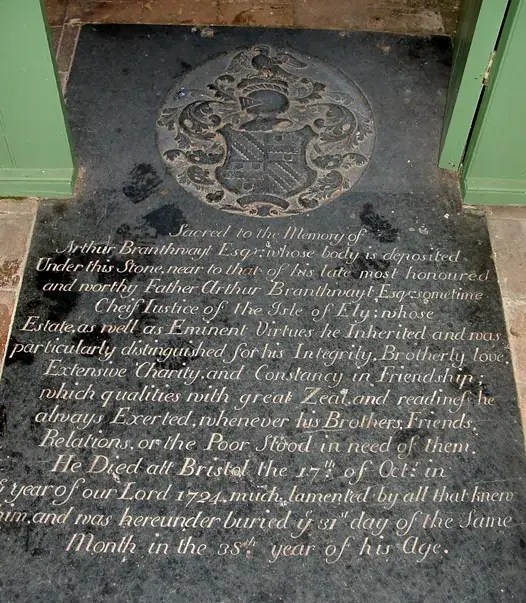 Sacred to the Memory of
Arthur Branthwayt Esqr: whose body is deposited
Under this Stone, near to that of his late most honoured
and worthy Father Arthur Branthwayt Esqr: sometime
Cheif Iustice of the Isle of Ely; whose
Estate, as well as Eminent Virtues he Inherited and was
particularly distinguished for his Integrity, Brotherly love,
Extensive Charity, and Constancy in Friendship;
which qualities with great Zeal, and readineſs he
always Exerted, whenever his Brothers, Friends,
Relations, or the Poor Stood in need of them.
He Died att Bristol the 17th of Oct: in
year of our Lord 1724, much lamented by all that knew
him, and was hereunder buried ye 31st day of the Same
Month in the 38th year of his Age.